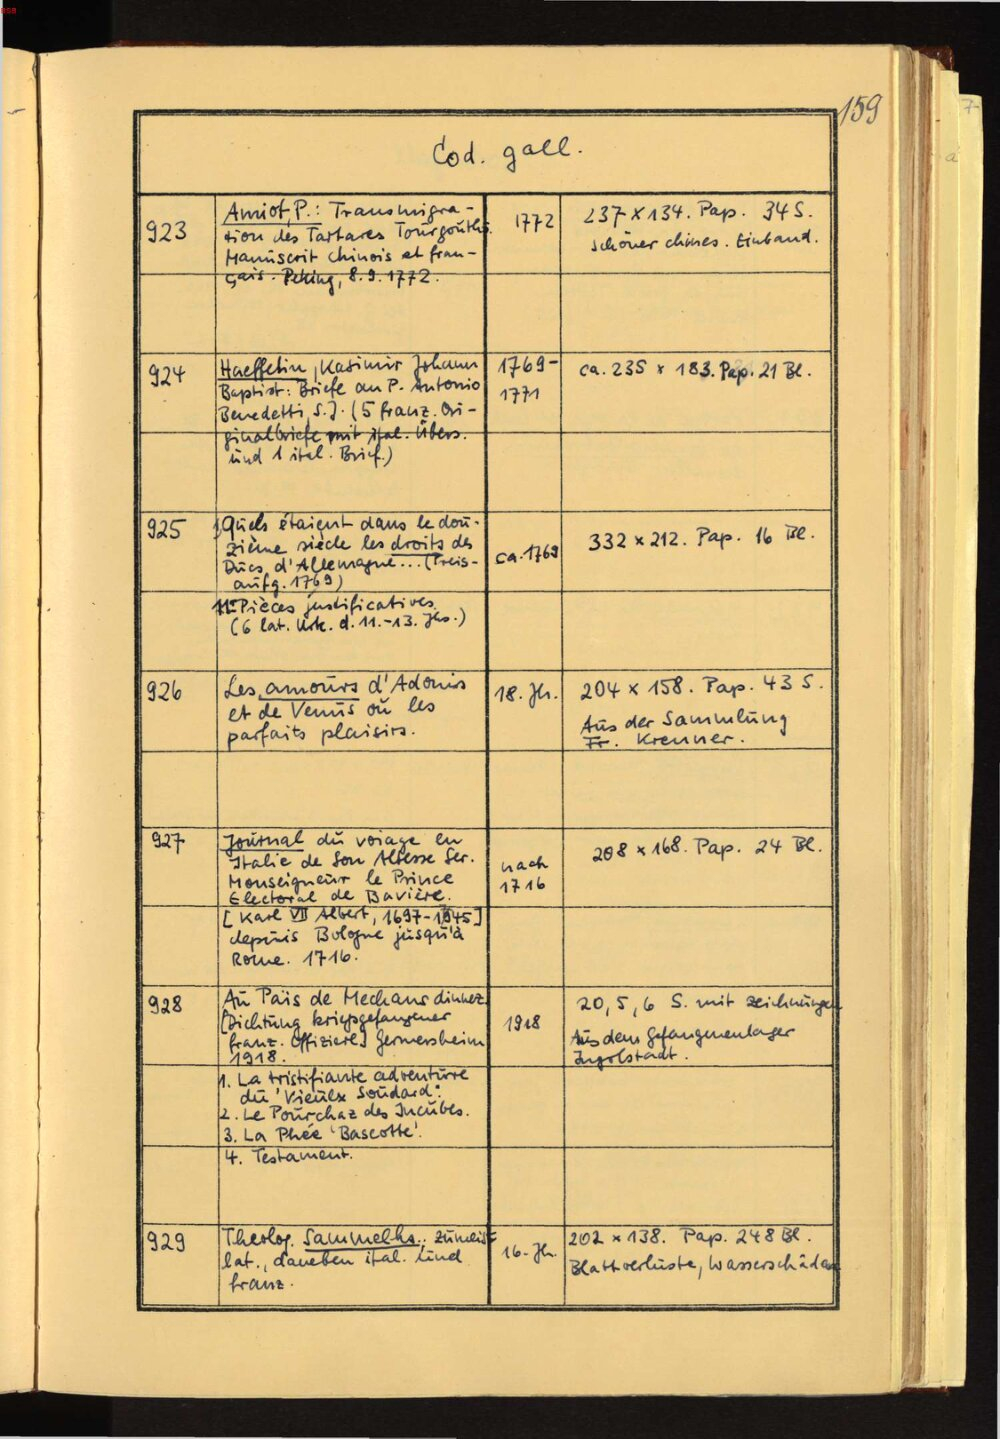 159
Cod. gall.
923
Amiot, P.: Transmigra-
tion des Tartares Tourgouths.
Manuscrit chinois et fran-
çais. Peking, 8.9.1772.
1772
237 x 134. Pap. 34 S.
schöner chines. Einband.
924
Haeffelin, Kasimir Johann
Baptist: Briefe an P. Antonio
Benedetti, S.J. (5 franz. Ori-
ginalbriefe mit ital. Übers.
und 1 ital. Brief.)
1769-
1771
ca. 235 x 183. Pap. 21 Bl.
925
Quels étaient dans le dou-
zième siècle les droits des
Ducs d'Allemagne... (Preis-
aufg. 1769)
II. Pièces justificatives
(6 lat. Urk. d. 11.-13. Jhs.)
ca. 1769
332 x 212. Pap. 16 Bl.
926
Les amours d'Adonis
et de Venus ou les
parfaits plaisirs.
18. Jh.
204 x 158. Pap. 43 S.
Aus der Sammlung
Fr. Krenner.
927
Journal du voiage en
Italie de Son Altesse Ser.
Monseigneur le Prince
Electoral de Bavière.
[Karl VII Albert, 1697-1745]
depuis Bologne jusqu'à
Rome. 1716.
nach
1716
208 x 168. Pap. 24 Bl.
928
Au Païs de Mechans dinnez.
[Dichtung kriegsgefangener
franz. Offiziere] Germersheim
1918.
1. La tristifiante adventure
du 'Vieulx Soudard'.
2. Le Pourchaz des Incubes.
3. La Phée 'Bascotte'.
4. Testament.
1918
20, 5, 6 S. mit Zeichnungen
Aus dem Gefangenenlager
Ingolstadt.
929
Theolog. Sammelhs., zumeist
lat., daneben ital. und
franz.
16. Jh.
202 x 138. Pap. 248 Bl.
Blattverluste, Wasserschäden